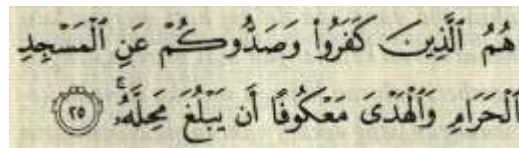 هُمُ ٱلَّذِينَ كَفَرُوا۟ وَصَدُّوكُمْ عَنِ ٱلْمَسْجِدِ
ٱلْحَرَامِ وَٱلْهَدْىَ مَعْكُوفًا أَن يَبْلُغَ مَحِلَّهُۥ ۚ ٢٥